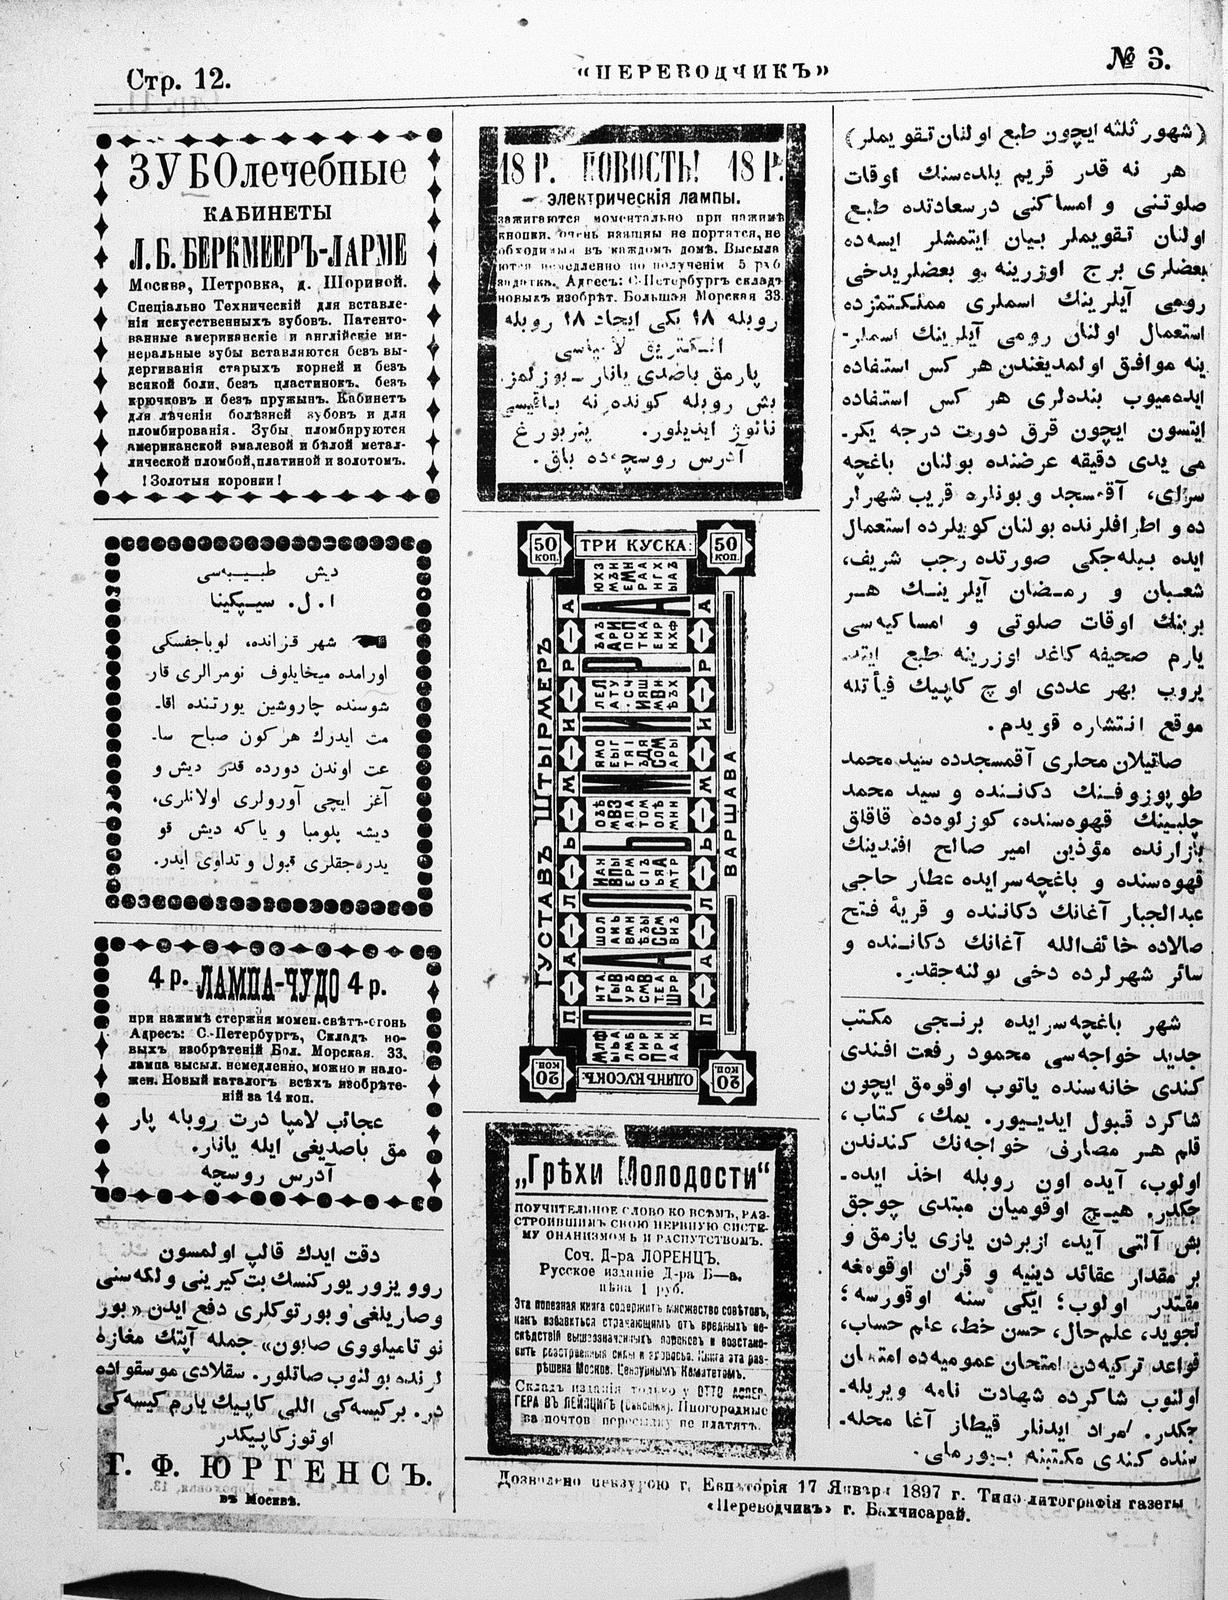 Стр. 12.
"ПЕРЕВОДЧИКЪ"
№ 3.
ЗУБОлечебные
КАБИНЕТЫ
Л. Б. БЕРКМЕЕРЪ-ЛАРМЕ
Москва, Петровка, д. Шориной.
Спеціально Техническій для вставле-
нія искусственныхъ зубовъ. Патенто-
ванные американскіе и англійскіе ми-
неральные зубы вставляются безъ вы-
дергиванія старыхъ корней и безъ
всякой боли, безъ пластинокъ, безъ
крючковъ и безъ пружынъ. Кабинетъ
для лѣченія болѣзней зубовъ и для
пломбированія. Зубы пломбируются
американской эмалевой и бѣлой метал-
лической пломбой, платиной и золотомъ.
! Золотыя коронки !
ديش طبيبه‌سی
ا. ل. سيپکينا
شهر قزانده، لوباجفسکی
اورامده ميخايلوف نومرالری قار
شوسنده چاروشين يورتنده اقا-
مت ايدرك هر کون صباح سا-
عت اوندن دورده قدر ديش و
آغز ايچی آورولری اولانلری،
ديشه پلومبا و ياکه ديش قو
يدره‌جقلری قبول و تداوی ايدر.
4 р. ЛАМПА-ЧУДО 4 р.
при нажимѣ стержня момен. свѣтъ-огонь
Адресъ: С.-Петербургъ, Складъ но-
выхъ изобрѣтеній Бол. Морская. 33.
лампа высыл. немедленно, можно и нало-
жен. Новый каталогъ всѣхъ изобрѣте-
ній за 14 коп.
عجائب لامپا درت روبله پار
مق باصديغی ايله يانار.
آدرس روسچه
دقت ايدك قالپ اولمسون
روو يزور يورکنسك بت کيرينی و لکه‌سنی
و صاريلغی و بورتوکلری دفع ايدن «بور
نو تاميلووی صابون» جمله آپتك مغازه
لرنده بولنوب صاتلور. سقلادی موسقواده
در. بر کيسه‌کی اللی کاپيك يارم کيسه‌کی
اوتوز کاپيکدر
Г. Ф. ЮРГЕНСЪ.
въ Москвѣ.
18 Р. НОВОСТЬ! 18 Р.
электрическія лампы.
зажигаются моментально при нажимѣ
кнопки, очень изящны не портятся, не
обходимыя въ каждомъ домѣ. Высыла
ются немедленно по полученіи 5 руб
задатка. Адресъ: С-Петербургъ складъ
новыхъ изобрѣт. Большая Морская 33.
روبله ١٨ يکی ايجاد ١٨ روبله
الکتريق لامپاسی
پارمق باصدی يانار ـ بوزلمز.
بش روبله کوندرنه باقيسی
نالوژ ايديلور. پتربورغ
آدرس روسچه‌ده باق.
50 коп.
ТРИ КУСКА:
50 коп.
ГУСТАВЪ ШТЫРМЕРЪ
ПАЛЬМИРА
ВАРШАВА
20 коп
ОДИНЪ КУСОКЪ:
20 коп.
„Грѣхи Молодости“
ПОУЧИТЕЛЬНОЕ СЛОВО КО ВСѢМЪ, РАЗ-
СТРОИВШИМЪ СВОЮ НЕРВНУЮ СИСТЕ-
МУ ОНАНИЗМОМЪ И РАСПУТСТВОМЪ.
Соч. Д-ра ЛОРЕНЦЪ.
Русское изданіе Д-ра Б—а.
цѣна 1 руб.
Эта полезная книга содержитъ множество совѣтовъ,
какъ избавиться страчающимъ отъ вредныхъ по-
слѣдствій вышеозначенныхъ пороковъ и возстано-
вить разстроенныя силы и здоровье. Книга эта раз-
рѣшена Москов. Цензурнымъ Комитетомъ.
Складъ изданія только у ОТТО АСПЕР-
ГЕРА ВЪ ЛЕЙПЦИГѢ (Саксонія). Иногородные
за почтов пересылку не платятъ.
(شهور ثلثه ايچون طبع اولنان تقويملر)
هر نه قدر قريم بلده‌سنك اوقات
صلوتنی و امساکنی درسعادتده طبع
اولنان تقويملر بيان ايتمشلر ايسه‌ده
بعضلری برج اوزرينه و بعضلريدخی
رومی آيلرينك اسملری مملکتمزده
استعمال اولنان رومی آيلرينك اسملر-
ينه موافق اولمديغندن هر کس استفاده
ايده‌ميوب بنده‌لری هر کس استفاده
ايتسون ايچون قرق دورت درجه يکر-
می يدی دقيقه عرضنده بولنان باغچه
سرای، آقمسجد و بونلره قريب شهرلر
ده و اطرافلرنده بولنان کويلرده استعمال
ايده بيله‌جکی صورتده رجب شريف،
شعبان و رمضان آيلرينك هر
برينك اوقات صلوتی و امساکيه‌سی
يارم صحيفه کاغد اوزرينه طبع ايتد
يروب بهر عددی اوچ کاپيك فيأتله
موقع انتشاره قويدم.
صاتيلان محلری آقمسجدده سيد محمد
طوپوزوفنك دکاننده و سيد محمد
چلبينك قهوه‌سنده، کوزلوه‌ده قاقلق
بازارنده مؤذين امير صالح افندينك
قهوه‌سنده و باغچه‌سرايده عطار حاجی
عبدالجبار آغانك دکاننده و قريهٔ فتح
صالاده خائف‌الله آغانك دکاننده و
سائر شهرلرده دخی بولنه‌جقدر.
شهر باغچه‌سرايده برنجی مکتب
جديد خواجه‌سی محمود رفعت افندی
کندی خانه‌سنده ياتوب اوقومق ايچون
شاکرد قبول ايدييور. يمك، کتاب،
قلم هر مصارف خواجه‌نك کندندن
اولوب، آيده اون روبله اخذ ايده-
جکدر. هيچ اوقوميان مبتدی چوجق
بش آلتی آيده، ازبردن يازی يازمق و
بر مقدار عقائد دينيه و قران اوقومغه
مقتدر اولوب؛ ايکی سنه اوقورسه؛
تجويد، علم‌حال، حسن خط، علم حساب،
قواعد ترکيه‌دن امتحان عموميه‌ده امتحان
اولنوب شاکرده شهادت نامه ويريله-
جکدر. مراد ايدنلر قيطاز آغا محله-
سنده کندی مکتبنه بيورملی.
Дозволено цензурою г. Евпаторія 17 Января 1897 г. Типо литографія газеты
«Переводчикъ» г. Бахчисарай.